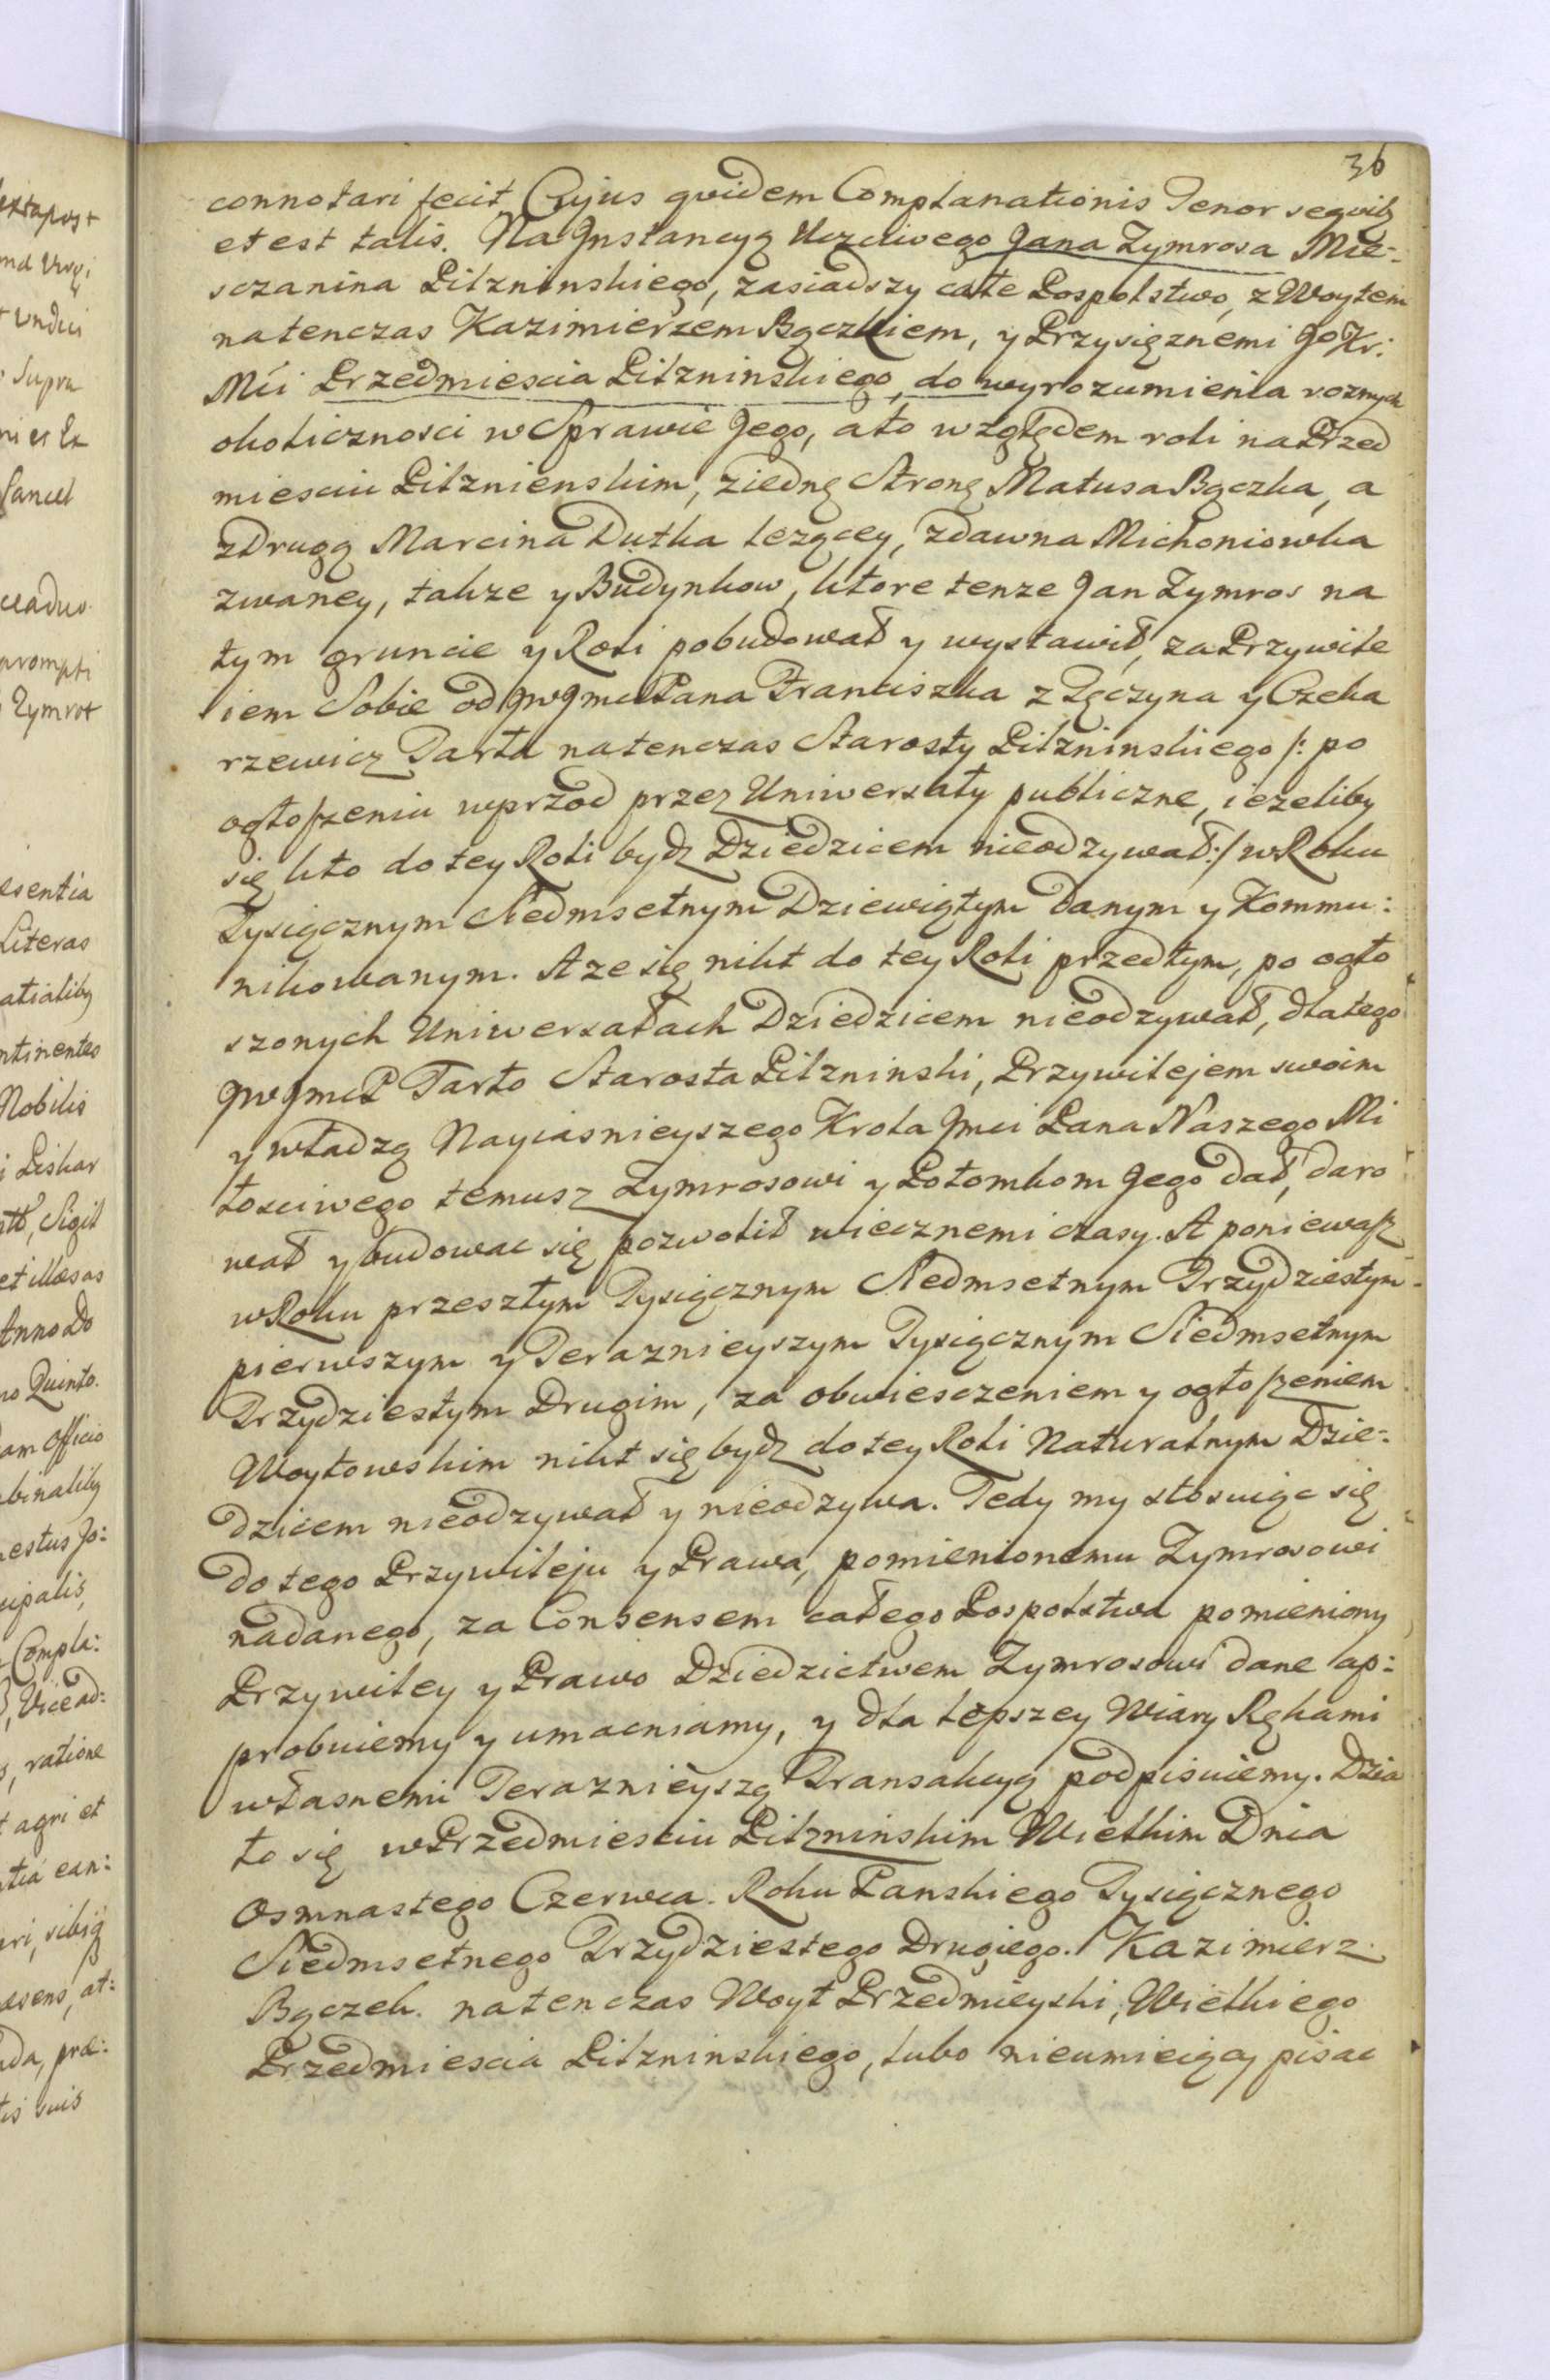 36
connotari fecit Cujus quidem Complanationis Tenor sequitᷣ
et est talis. Na Jnstancyą Uczciwego Jana Zymrosa Mie-:
sczanina Pilzninskiego, zasiadszy całe Pospolstwo, z Woytem
natenczas Kazimierzem Bączkiem, y Przysięznemi Jo Kr:
Mći Przedmiescia Pilzninskiego, do wyrozumienia roznych
okolicznosci w Sprawie Jego, ato względem roli na Przed
miesciu Pilznienskim, ziednę Stronę Matusa Bączka, a
zDrugą Marcina Dutka lezącey, zdawna Michoniowka
zwaney, takze y Budynkow, ktore tenze Jan Zymros na
tym gruncie y Roli pobudował y wystawił, za Przywile
iem Sobie od JwJmci Pana Franciszka z Tęczyna y Czeka
rzewicz Tarła natenczas Starosty Pilzninskiego /: po
ogłoszeniu wprzod przez Uniwersały publiczne, iezeliby
się kto do tey Roli bydz Dziedzicem nieodzywał :/ w Roku
Tysiącznym Siedmsetnym Dziewiątym danym y Kommu:
nikowanym. A ze się nikt do tey Roli przedtym, po ogło
szonych Uniwersałach Dziedzicem nieodzywał, dlatego
JwJmcP Tarło Starosta Pilzninski, Przywilejem swoim
y władzą Nayiasnieyszego Krola Jmci Pana Naszego Mi
łosciwego temusz Zymrosowi y Potomkom Jego dał, daro
wał y budowac się pozwolił wiecznemi czasy. A poniewasz
w Roku przeszłym Tysiącznym Siedmsetnym Trzydziestym
pierwszym y Teraznieyszym Tysiącznym Siedmsetnym
Trzydziestym Drugim, za obwiesczeniem y ogłoszeniem
Woytowskim nikt się bydz do tey Roli Naturalnym Dzie-:
dzicem nieodzywał y nieodzywa. Tedy my stosuiąc się
do tego Przywileju y Prawa, pomienionemu Zymrosowi
nadanego, za Consensem całego Pospolstwa pomieniony
Przywiley y Prawo Dziedzictwem Zymrosowi dane ap:
probuiemy y umacniamy, y dla lepszey Wiary Rękami
własnemi Teraznieyszą Transakcyą podpisuiemy. Dzia
ło się w Przedmiesciu Pilzninskim Wielkim Dnia
Osmnastego Czerwca. Roku Panskiego Tysiącznego
Siedmsetnego Trzydziestego Drugiego. Kazimierz
Bączek. natenczas Woyt Przedmieyski, Wielkiego
Przedmiescia Pilzninskiego, lubo nieumieiący pisac